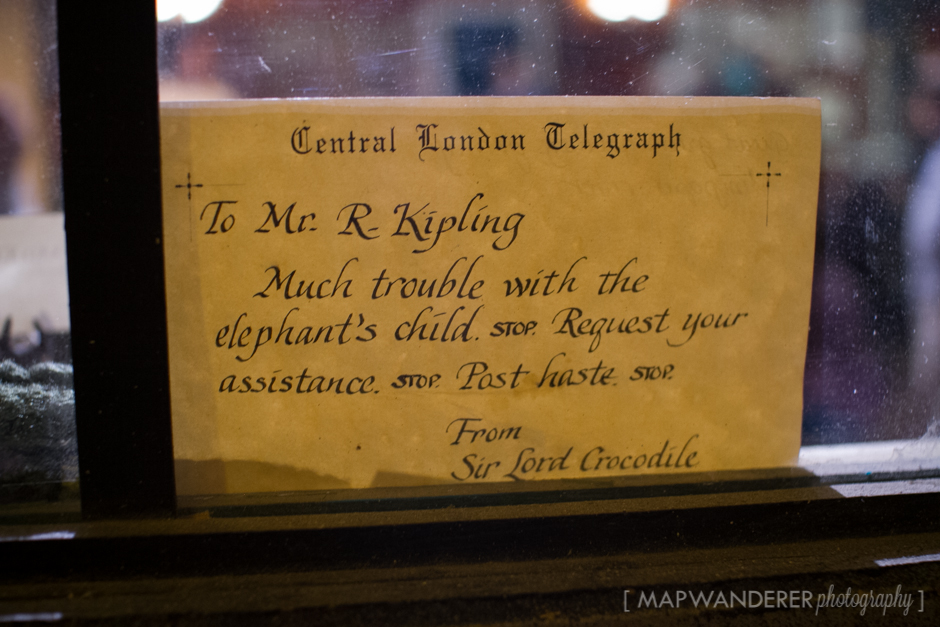 Central London Telegraph
To Mr. R. Kipling
Much trouble with the
elephant's child. STOP. Request your
assistance. STOP. Post haste. STOP.
From
Sir Lord Crocodile
[ MAPWANDERER photography ]